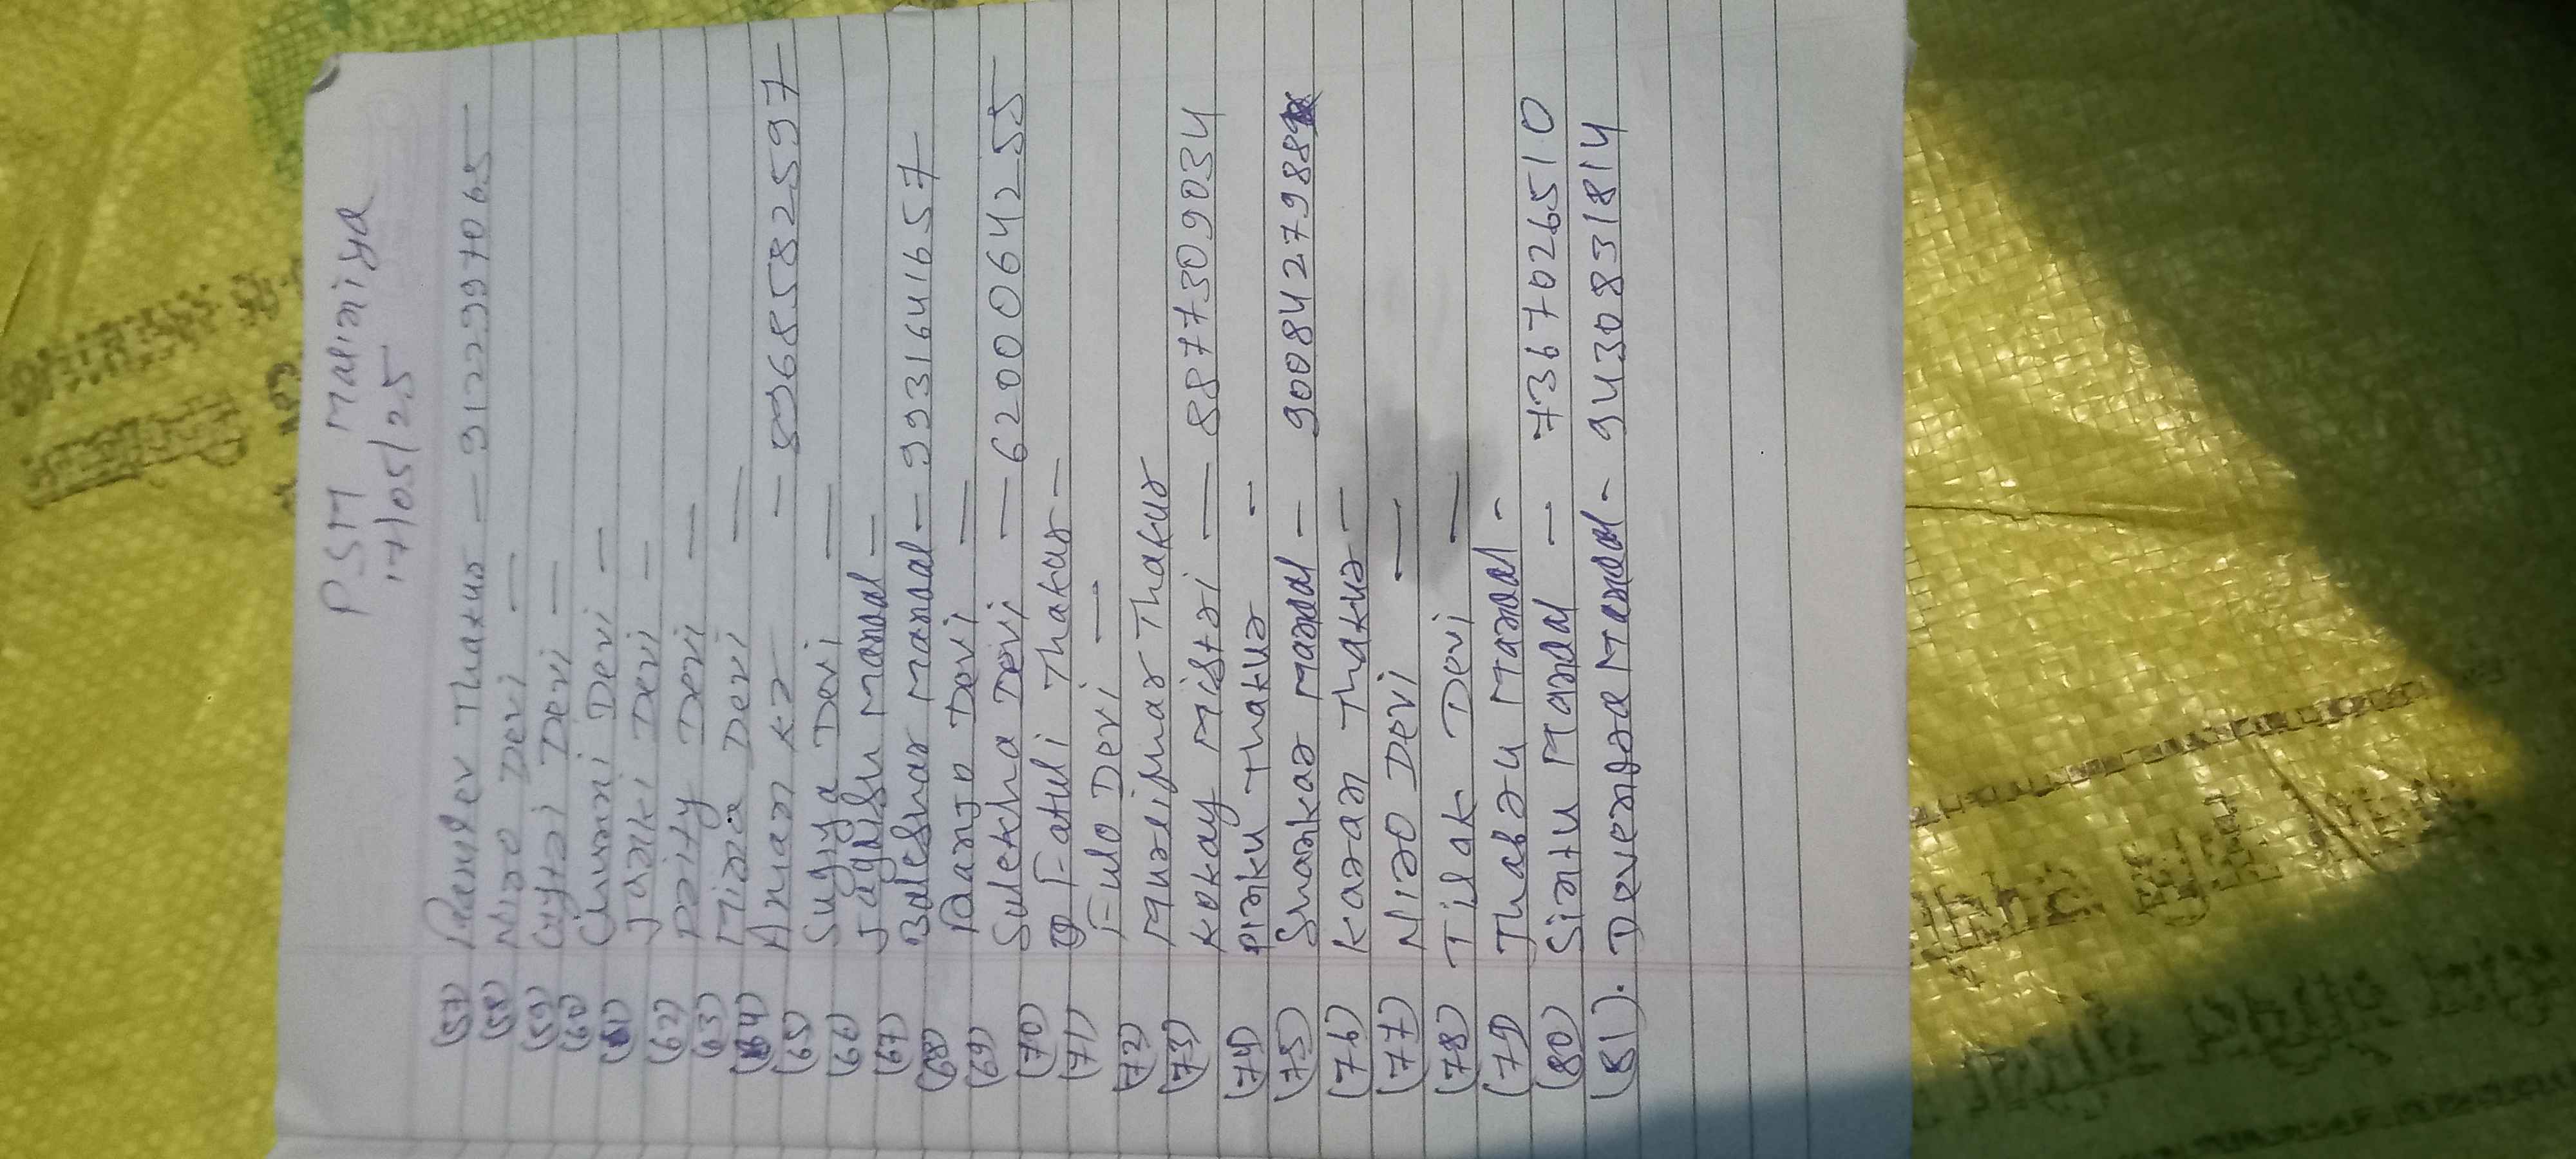 PSM Maliniya
17/05/25
(57) Ramdev Thakur — 9122997065
(58) Niro Devi —
(59) Devi —
(60) Chunni Devi —
(61) Janki Devi —
(62) Prity Devi —
(63) Mina Devi —
(64) Aman Kr — 8968582597
(65) Sugiya Devi —
(66) Jagdish Mandal —
(67) Baleshar Mandal — 9931641657
(68) Devi —
(69) Sulekha Devi — 6200064255
(70) Fatuli Thakur —
(71) Fulo Devi —
(72) Murlidhar Thakur
(73) Kokay Mistri — 8877309034
(74) Pinku Thakur —
(75) Shankar Mandal — 9008427988
(76) Karan Thakur —
(77) Niro Devi —
(78) Tilak Devi —
(79) Thabru Mandal -
(80) Sintu Mandal — 7367026510
(81). Devendra Mandal - 9430831814